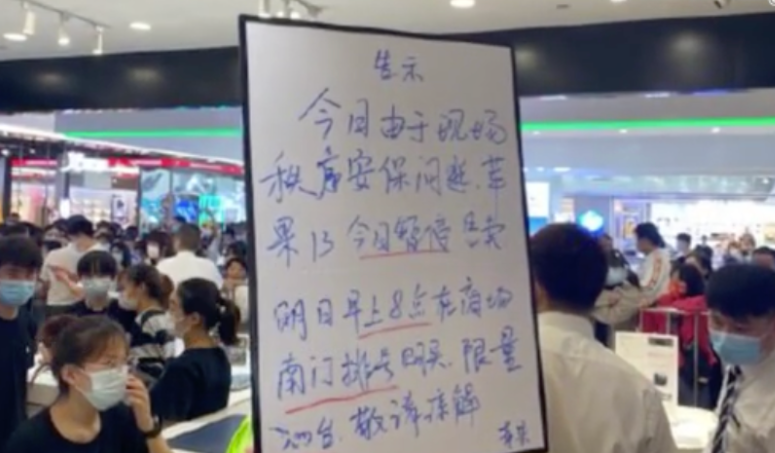 告示
今日由于现场
秩序安保问题,苹
果13今日暂停售卖
明日早上8点在商场
南门排号购买,限量
200台,敬请谅解